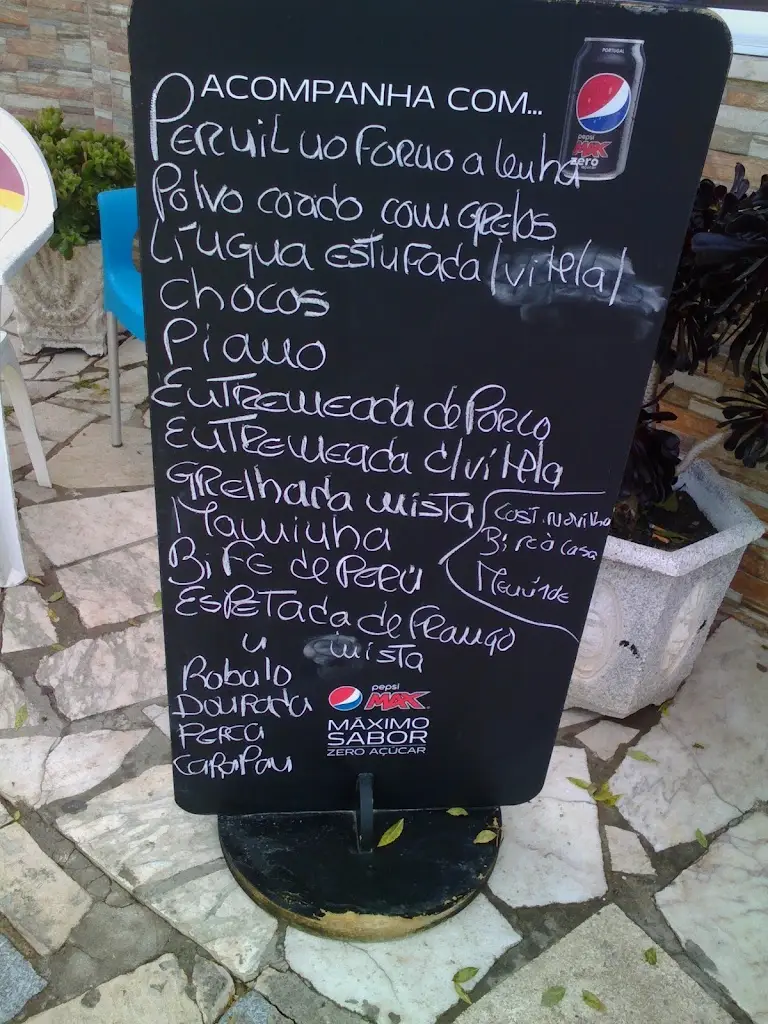 ACOMPANHA COM...
PORTUGAL
pepsi
MAX
zero
AÇÚCAR
PERNIL NO FORNO a lenha
Polvo corado com GRELOS
LÍNGUA ESTUFADA (vitela)
CHOCOS
Piano
ENTREMEADA de PORCO
ENTREMEADA d/vitela
GRELHADA MISTA
Maminha
BIFE de PERÚ
ESPETADA de FRANGO
" MISTA
COST. Novilho
Bife à Casa
Robalo
DOURADA
PERCA
CARAPAU
pepsi
MAX
MÁXIMO
SABOR
ZERO AÇÚCAR